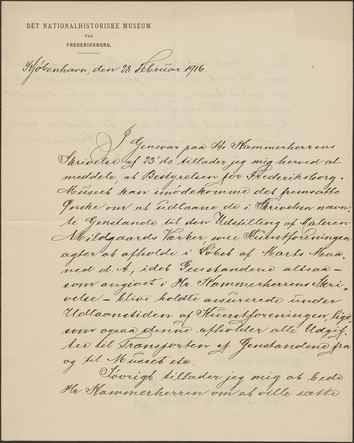 DET NATIONALHISTORISKE MUSEUM
PAA
FREDERIKSBORG.
København, den 28. Februar 1916
I Gensvar paa Hr. Kammerherrens
Skrivelse af 23' ds. tillader jeg mig herved at
meddele, at Bestyrelsen for Frederiksborg-
Museet kan imødekomme det fremsatte
Ønske om at udlaane de i Skrivelsen nævn-
te Genstande til den Udstilling af Maleren
Abildgaards Værker som Kunstforeningen
agter at afholde i Løbet af Marts Maa-
ned d. A., idet Genstandene altsaa –
som angivet i Hr. Kammerherrens Skri-
velse – blive holdte assurerede under
Udlaanstiden af Kunstforeningen, lige-
som ogsaa denne afholder alle Udgif-
ter til Transporten af Genstandene fra
og til Museet etc.
Iøvrigt tillader jeg mig at bede
Hr. Kammerherren om at ville sætte